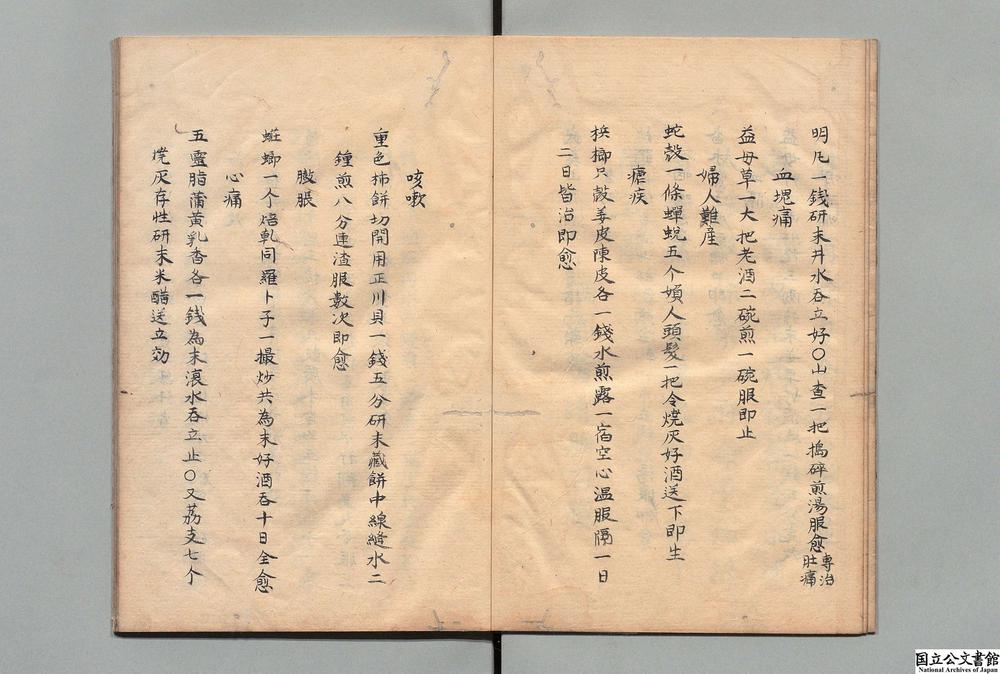 明凡一錢研末井水吞立好〇山查一把搗碎煎湯服愈專治肚痛
血塊痛
益母草一大把老酒二碗煎一碗服即止
婦人難產
蛇殼一條蟬蛻五个婦人頭髮一把令燒灰好酒送下即生
瘧疾
檳榔只殼姜皮陳皮各一錢水煎露一宿空心溫服隔一日
二日皆治即愈
咳嗽
重色柿餅切開用正川貝一錢五分研末藏餅中線縫水二
鍾煎八分連渣服數次即愈
膨脹
蜣螂一个焙乹同羅卜子一撮炒共為末好酒吞十日全愈
心痛
五靈脂蒲黃乳香各一錢為末滾水吞立止〇又荔支七个
燒灰存性研末米醋送立効
国立公文書館
National Archives of Japan